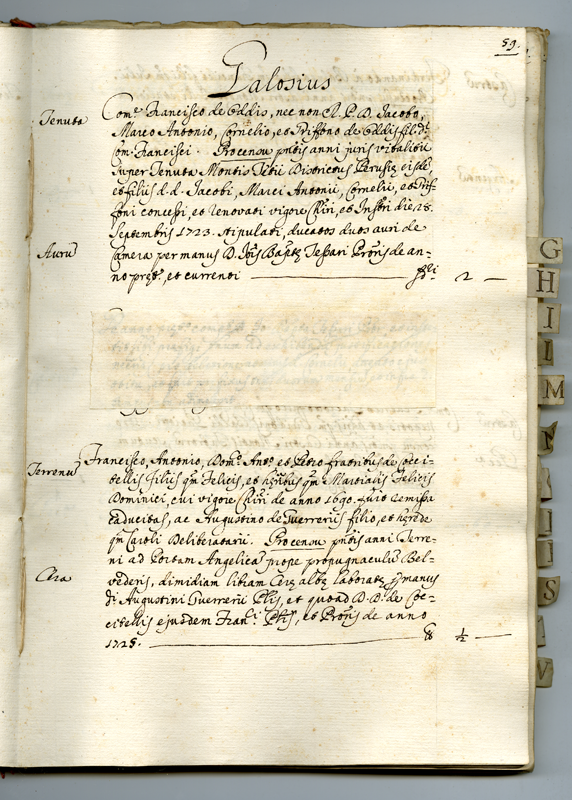 59.
Palosius
Tenuta
Com.^e Francisco de Oddis, nec non Ill. P. D. Jacobo,
Marco Antonio, Cornelio, et Triffono de Oddis filijs
Com. Francisci. Pro censu pntis anni juris vitalitii
super Tenuta Montis Tetii Districtus Perusiæ eisdē,
et filiis d. d. Jacobi, Marci Antonii, Cornelii, et Trif-
foni concessi, et renovati vigore Chiri, et Instri die 28.
Septembris 1723. stipulati, ducatos duos auri de
Aurū
Camera per manus D. Jōis Baptæ Tessari Proris de an-
no preto, et currenti
2 —
Terrenū
Francisco, Antonio, Dom.co Ant.o et Petro fratribus de Cocci-
tellis filiis qm Felicis, et heredibus qm Martialis Felicis
Dominici, cui vigore Chiri de anno 1690. fuit remissa
caducitas, ac Augustino de Guerreriis filio, et herede
qm Caroli Deliberatarii. Pro censu pntis anni Terre-
ni ad Portam Angelicā prope propugnaculū Bel-
Cera
vederis, dimidiam libram Ceræ albæ laboratæ p manus
Di Augustini Guerrerii Ptis, et quoad D. D. de Coc-
citellis ejusdem Fran.ci Ptis, et Proris de anno
1725.
½ —
G
H
I
I
M
N
I
I
S
V